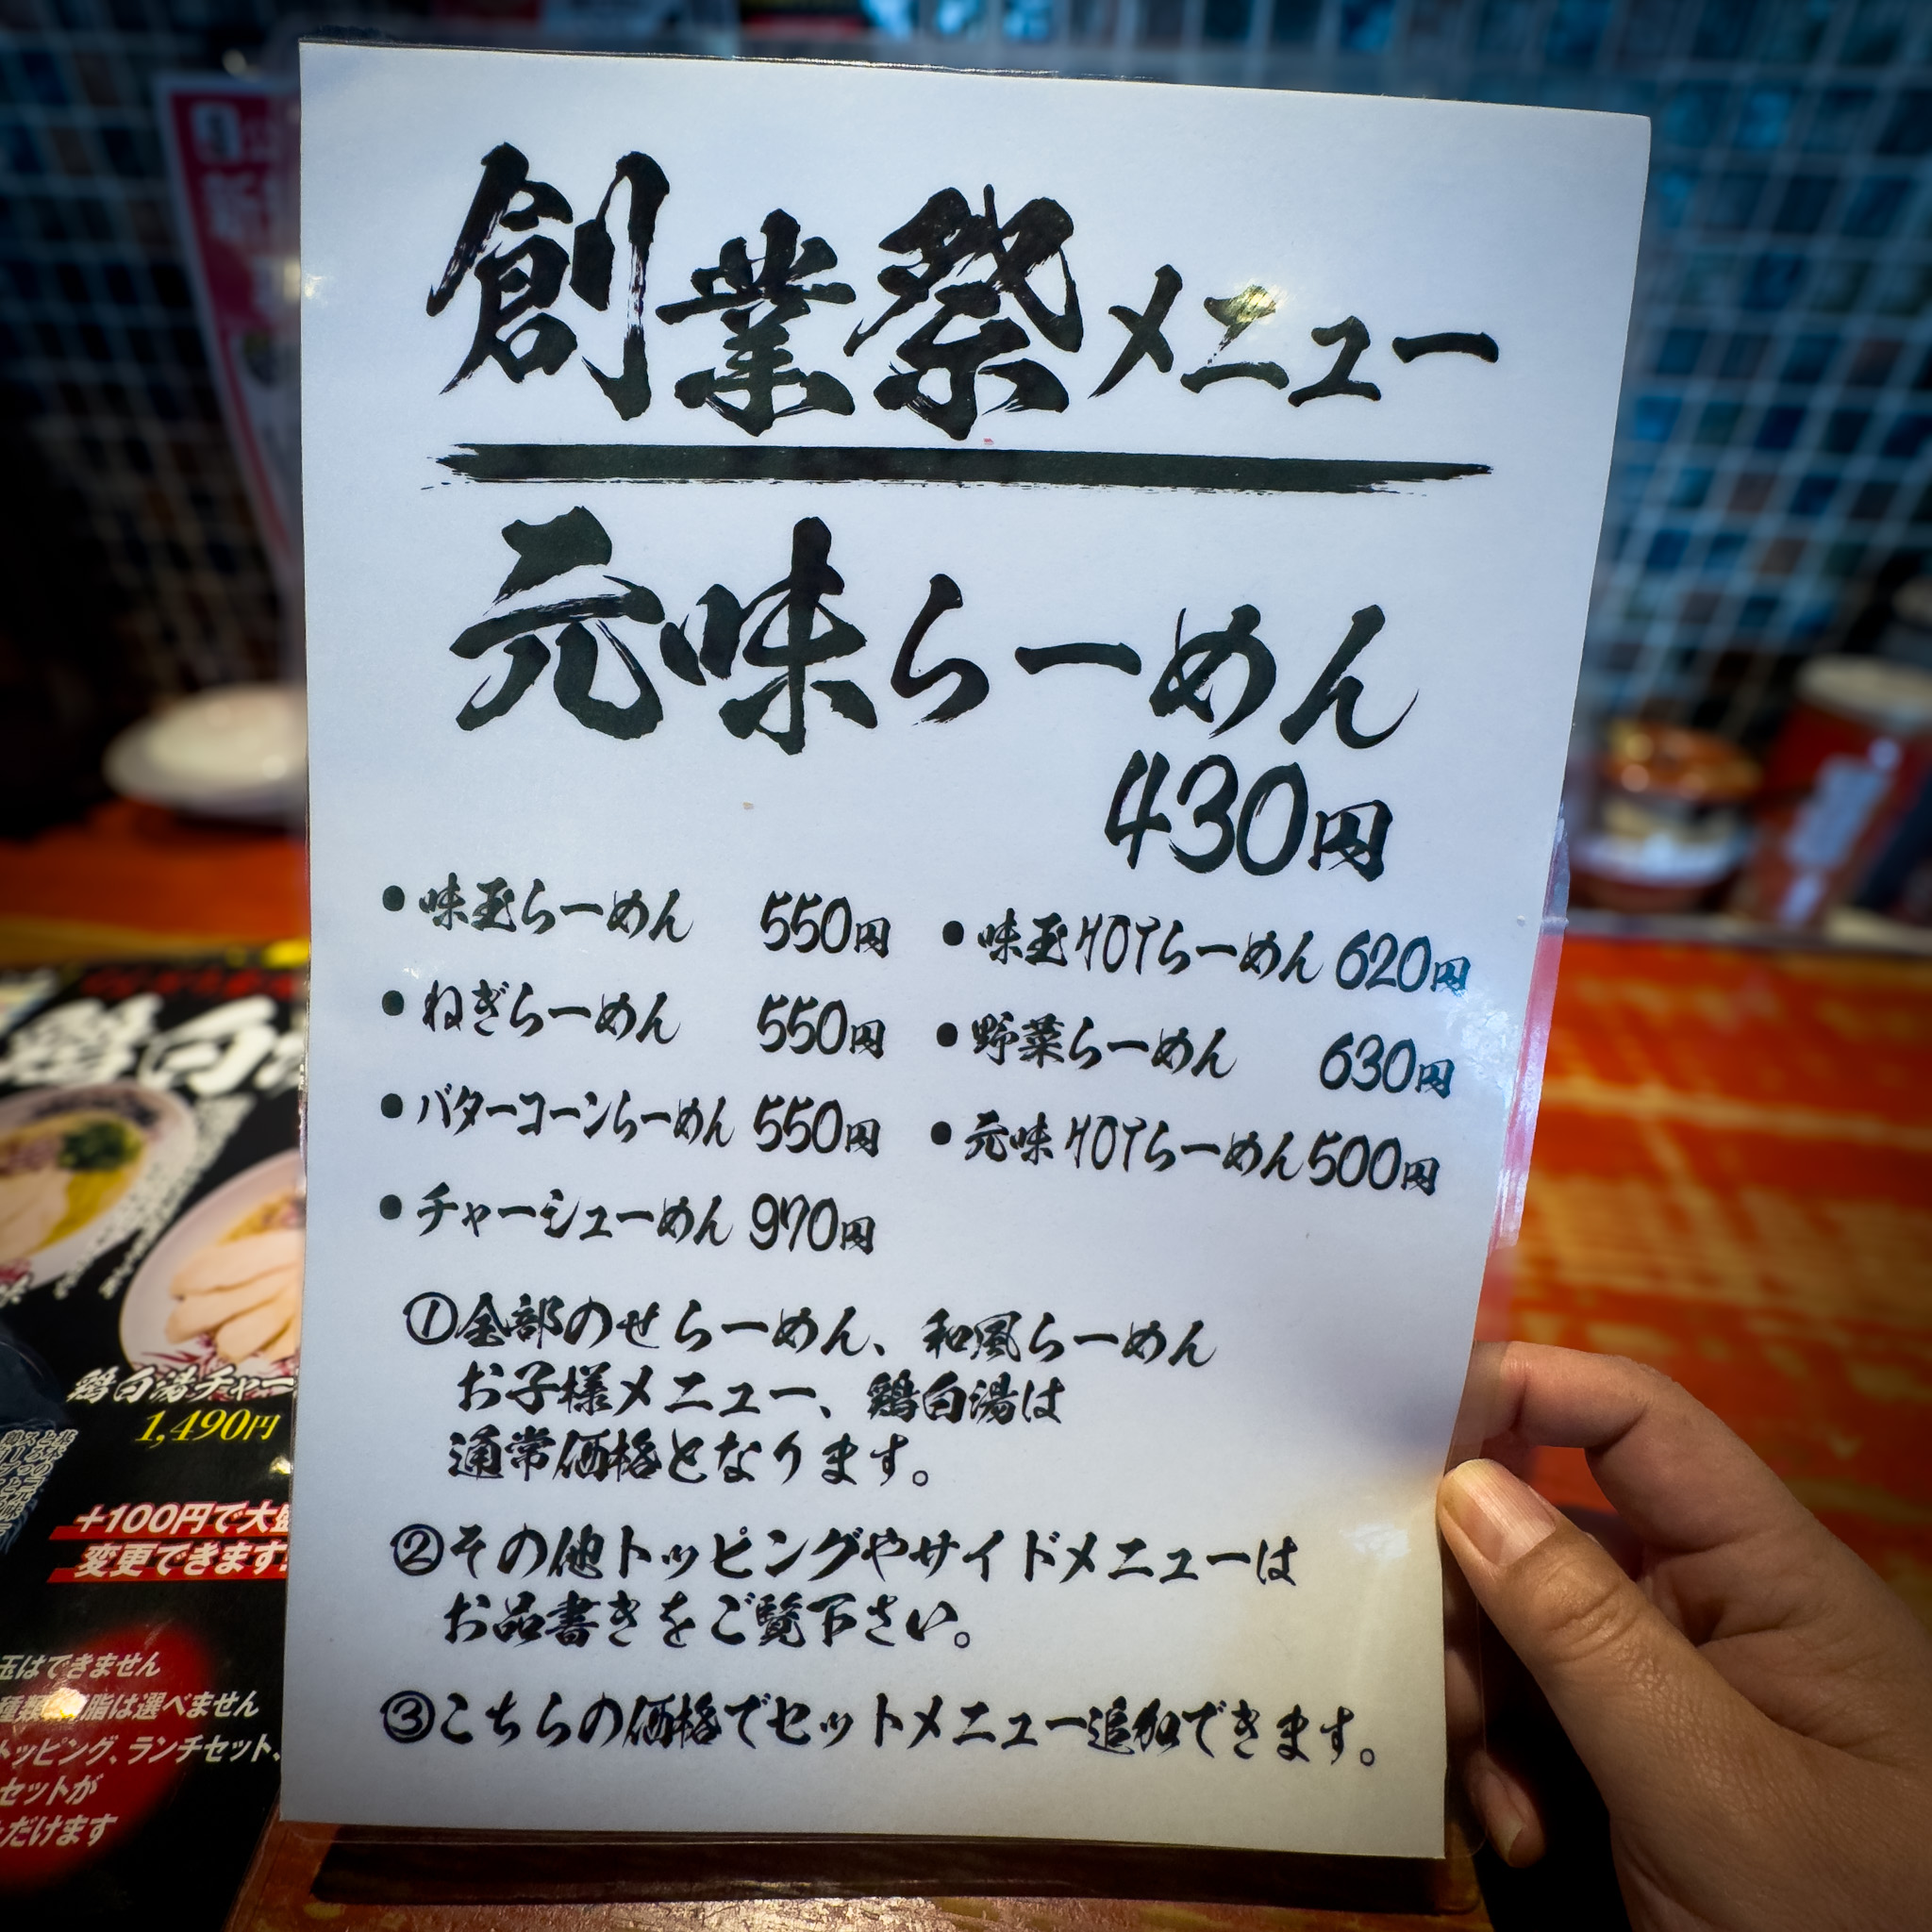 創業祭メニュー
元味らーめん
430円
●味玉らーめん 550円
●ねぎらーめん 550円
●バターコーンらーめん 550円
●チャーシューめん 970円
●味玉HOTらーめん 620円
●野菜らーめん 630円
●元味HOTらーめん 500円
①全部のせらーめん、和風らーめん
お子様メニュー、鶏白湯は
通常価格となります。
②その他トッピングやサイドメニューは
お品書きをご覧下さい。
③こちらの価格でセットメニュー追加できます。
鶏白
鶏白湯チャー
1,490円
+100円で大盛
変更できます!
玉はできません
脂は選べません
トッピング、ランチセット、
セットが
だけます